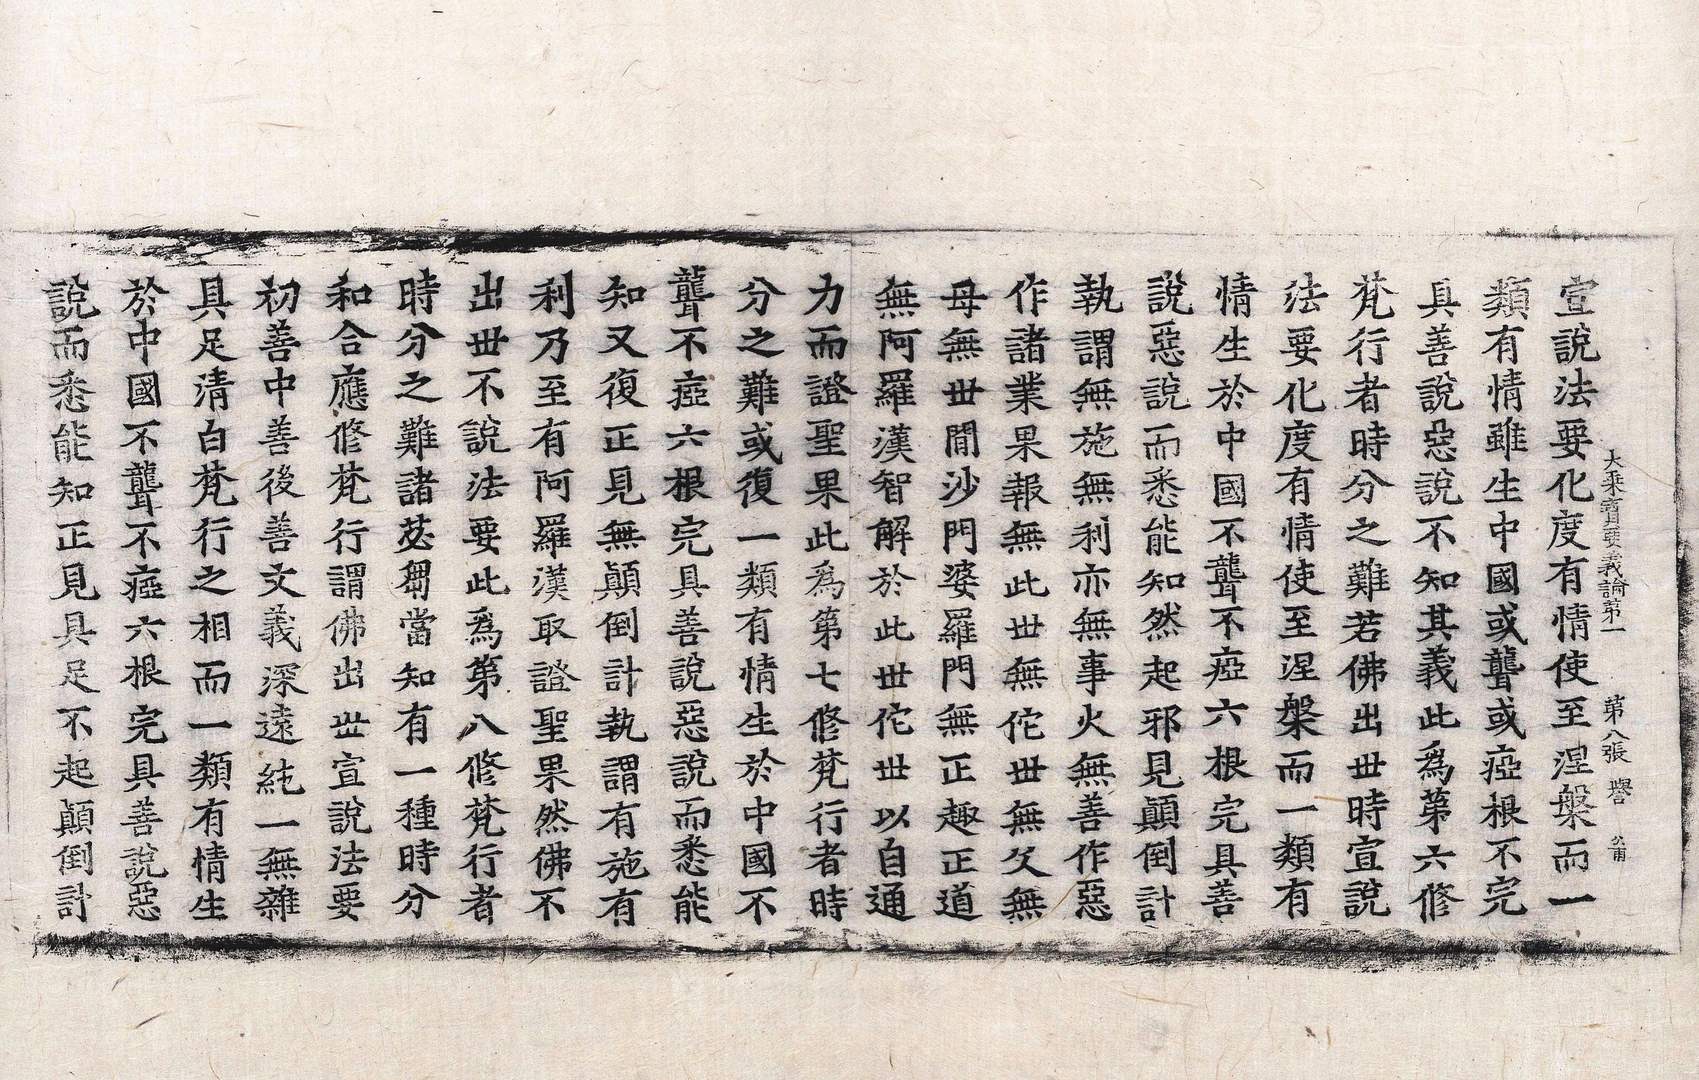 大乘寶要義論第一 第八張 譽
宣說法要化度有情使至涅槃而一
類有情雖生中國或聾或瘂根不完
具善說惡說不知其義此爲第六修
梵行者時分之難若佛出世時宣說
法要化度有情使至涅槃而一類有
情生於中國不聾不瘂六根完具善
說惡說而悉能知然起邪見顛倒計
執謂無施無利亦無事火無善作惡
作諸業果報無此世無佗世無父無
母無世間沙門婆羅門無正趣正道
無阿羅漢智解於此世佗世以自通
力而證聖果此爲第七修梵行者時
分之難或復一類有情生於中國不
聾不瘂六根完具善說惡說而悉能
知又復正見無顛倒計執謂有施有
利乃至有阿羅漢取證聖果然佛不
出世不說法要此爲第八修梵行者
時分之難諸苾芻當知有一種時分
和合應修梵行謂佛出世宣說法要
初善中善後善文義深遠純一無雜
具足清白梵行之相而一類有情生
於中國不聾不瘂六根完具善說惡
說而悉能知正見具足不起顛倒計